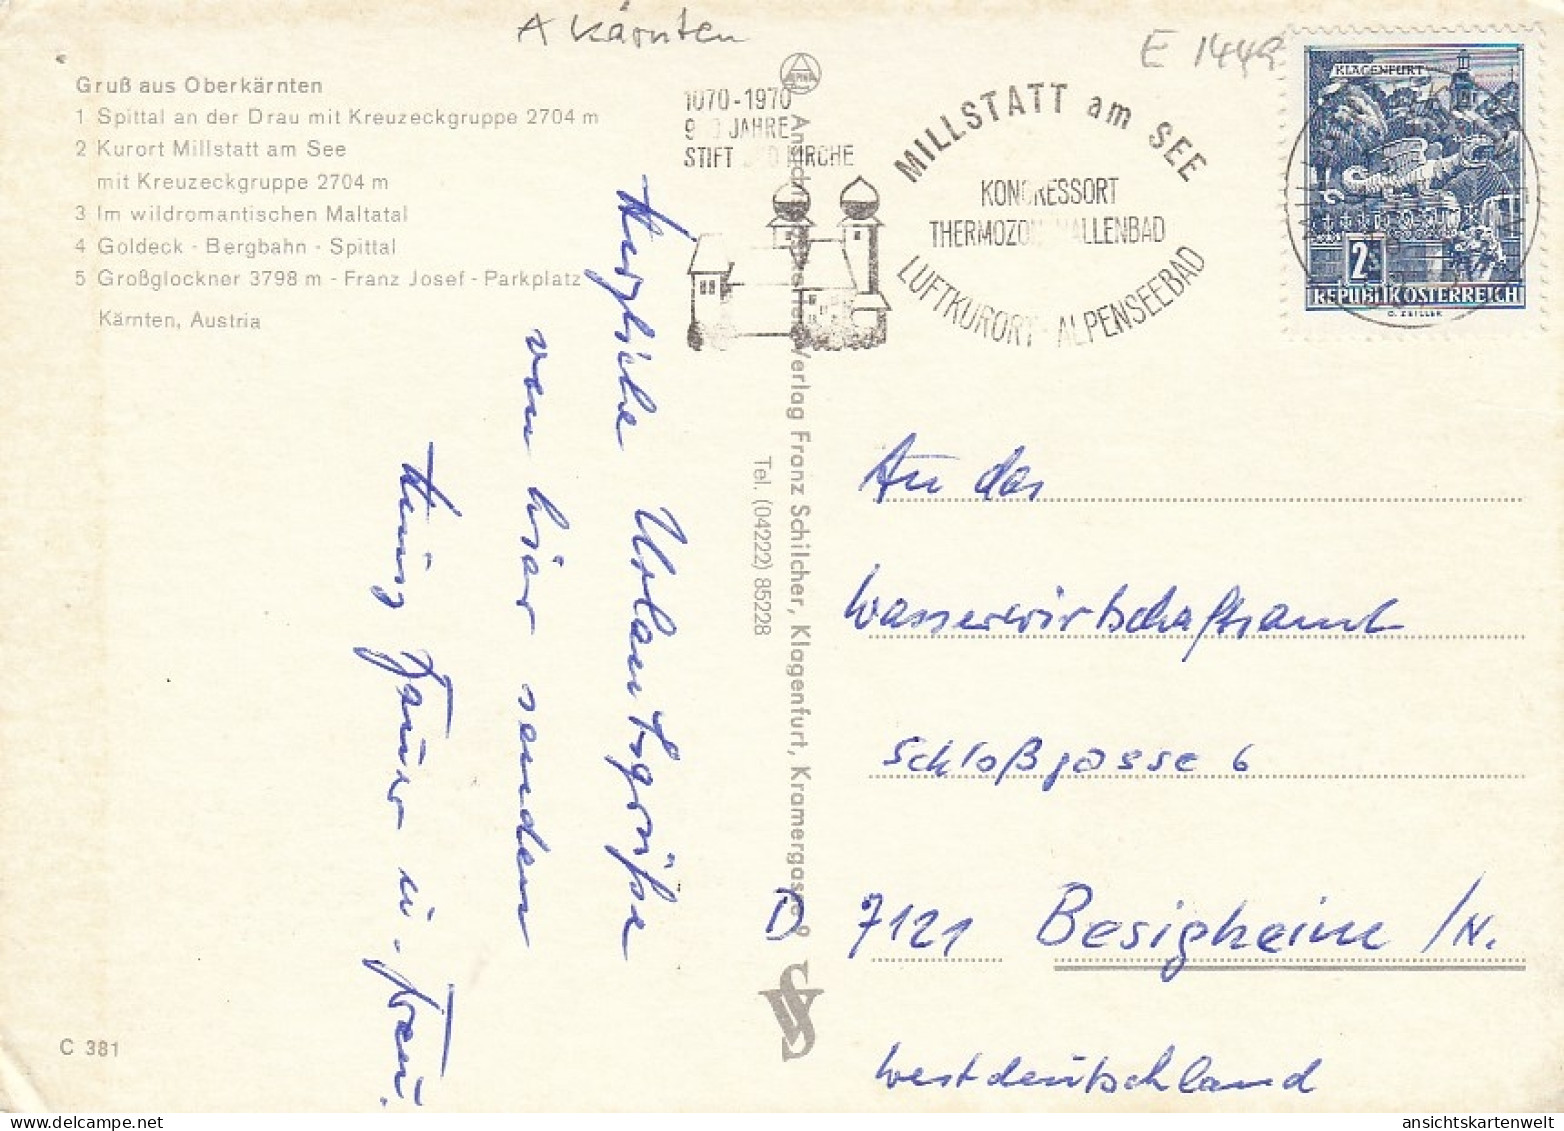 A Kärnten
E 1449
Gruß aus Oberkärnten
1 Spittal an der Drau mit Kreuzeckgruppe 2704 m
2 Kurort Millstatt am See
mit Kreuzeckgruppe 2704 m
3 Im wildromantischen Maltatal
4 Goldeck - Bergbahn - Spittal
5 Großglockner 3798 m - Franz Josef - Parkplatz
Kärnten, Austria
1070-1970
JAHRE
STIFT KIRCHE
MILLSTATT am SEE
KONGRESSORT
THERMOZON HALLENBAD
LUFTKURORT - ALPENSEEBAD
KLAGENFURT
2 S
REPUBLIK ÖSTERREICH
G. ZEILLER
Herzliche Urlaubsgrüße
von hier senden
u. Frau
Ansichtskarten-Verlag Franz Schilcher, Klagenfurt, Kramergasse 9
Tel. (04222) 85228
An das
Wasserwirtschaftsamt
Schloßgasse 6
D 7121 Besigheim /N.
Westdeutschland
C 381
ansichtskartenwelt